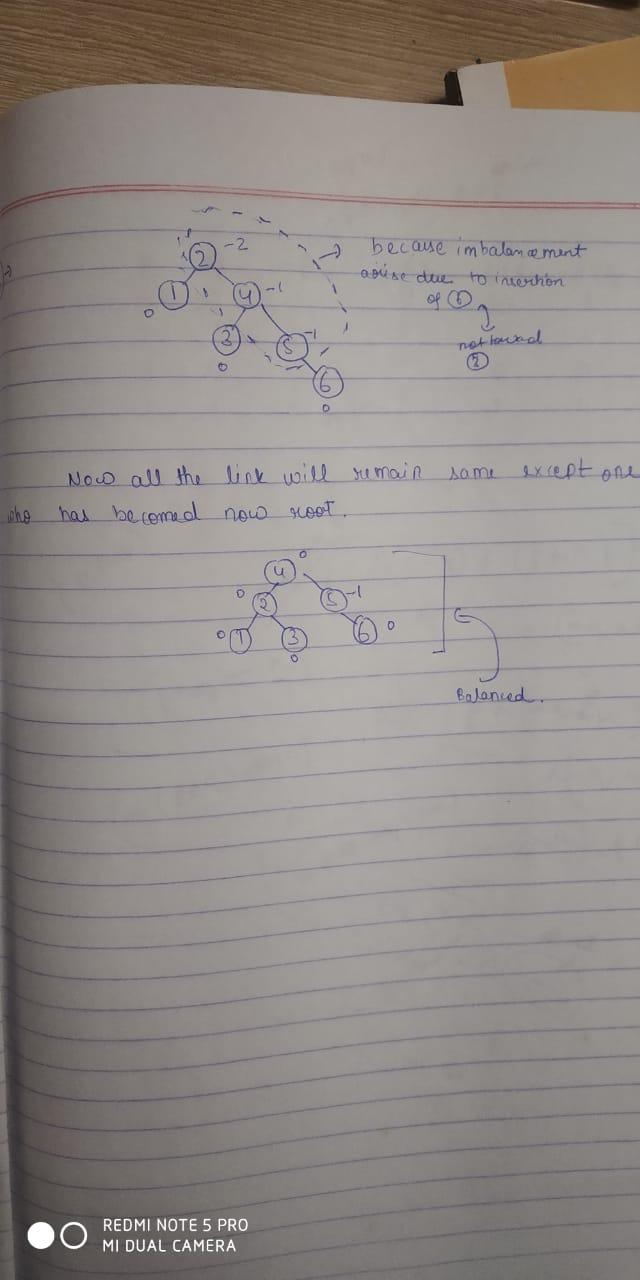 2 -2
1 4 -1
0
3 5 -1
0
6
0
because imbalancement
arise due to insertion
of 6
not toward
Now all the link will remain same except one
who has becomed now root.
4 0
0 2 5 -1
0 1 3 6 0
0
Balanced.
REDMI NOTE 5 PRO
MI DUAL CAMERA